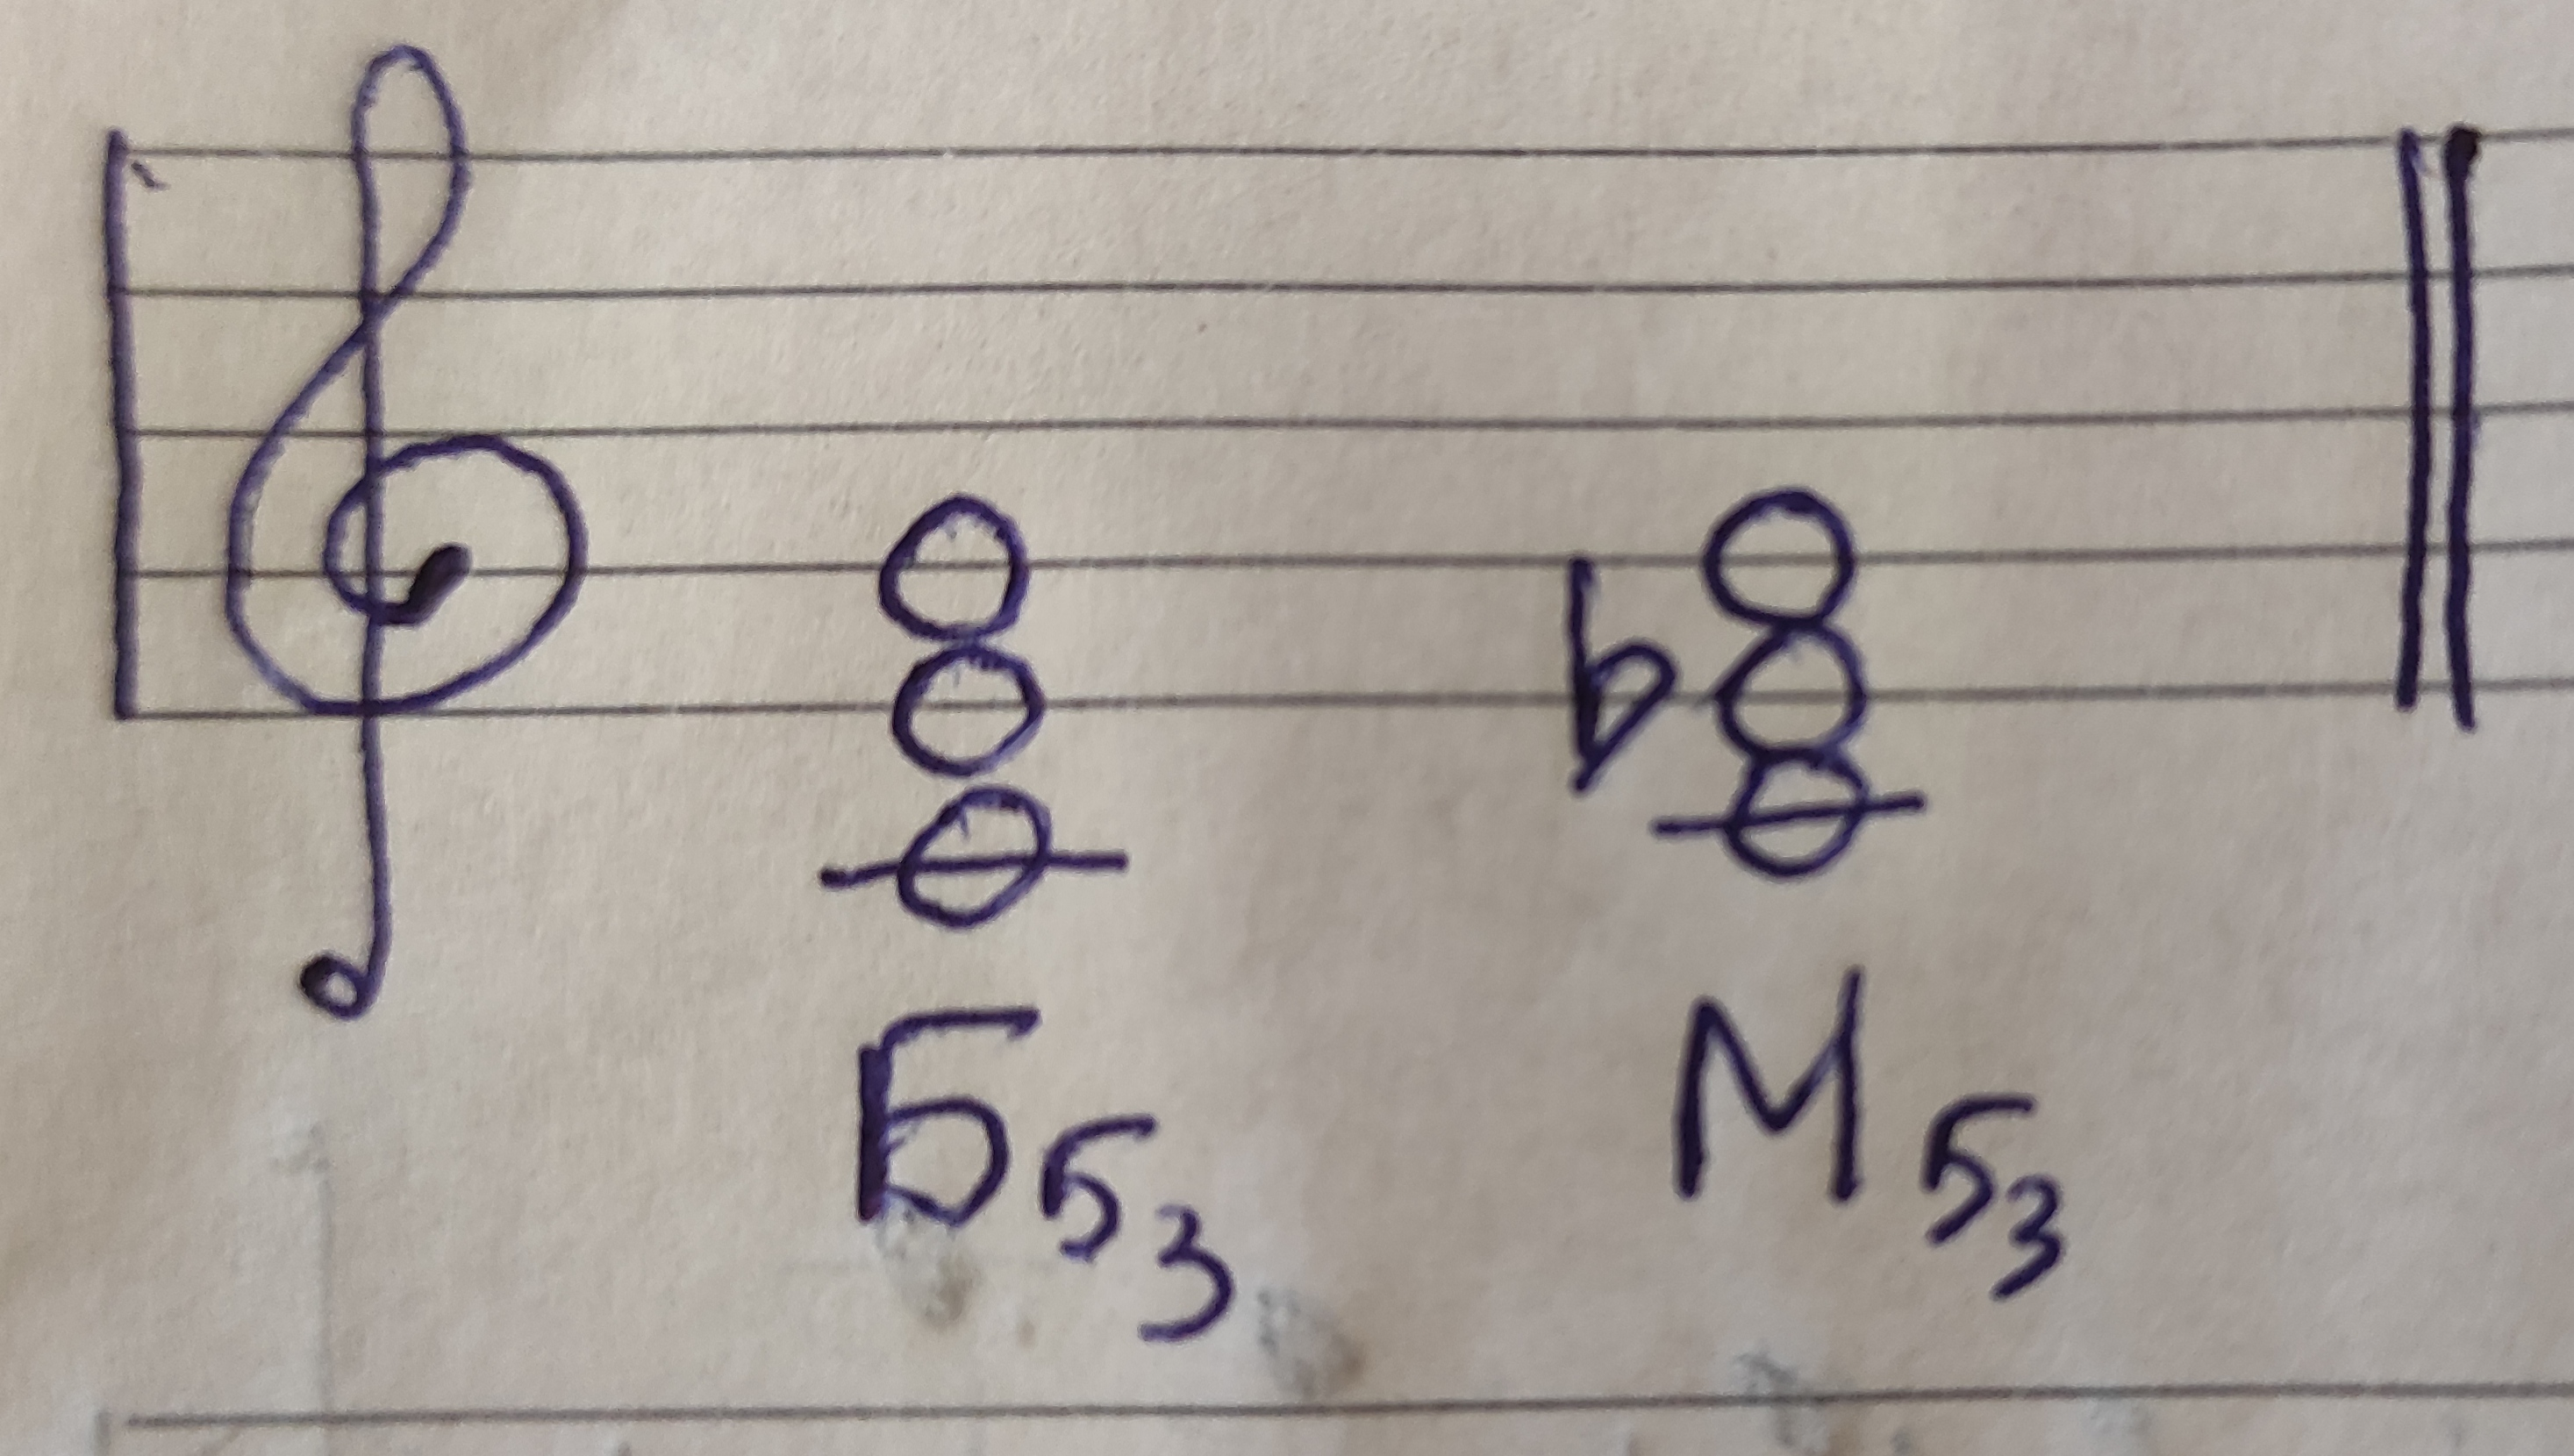 Б53 М53